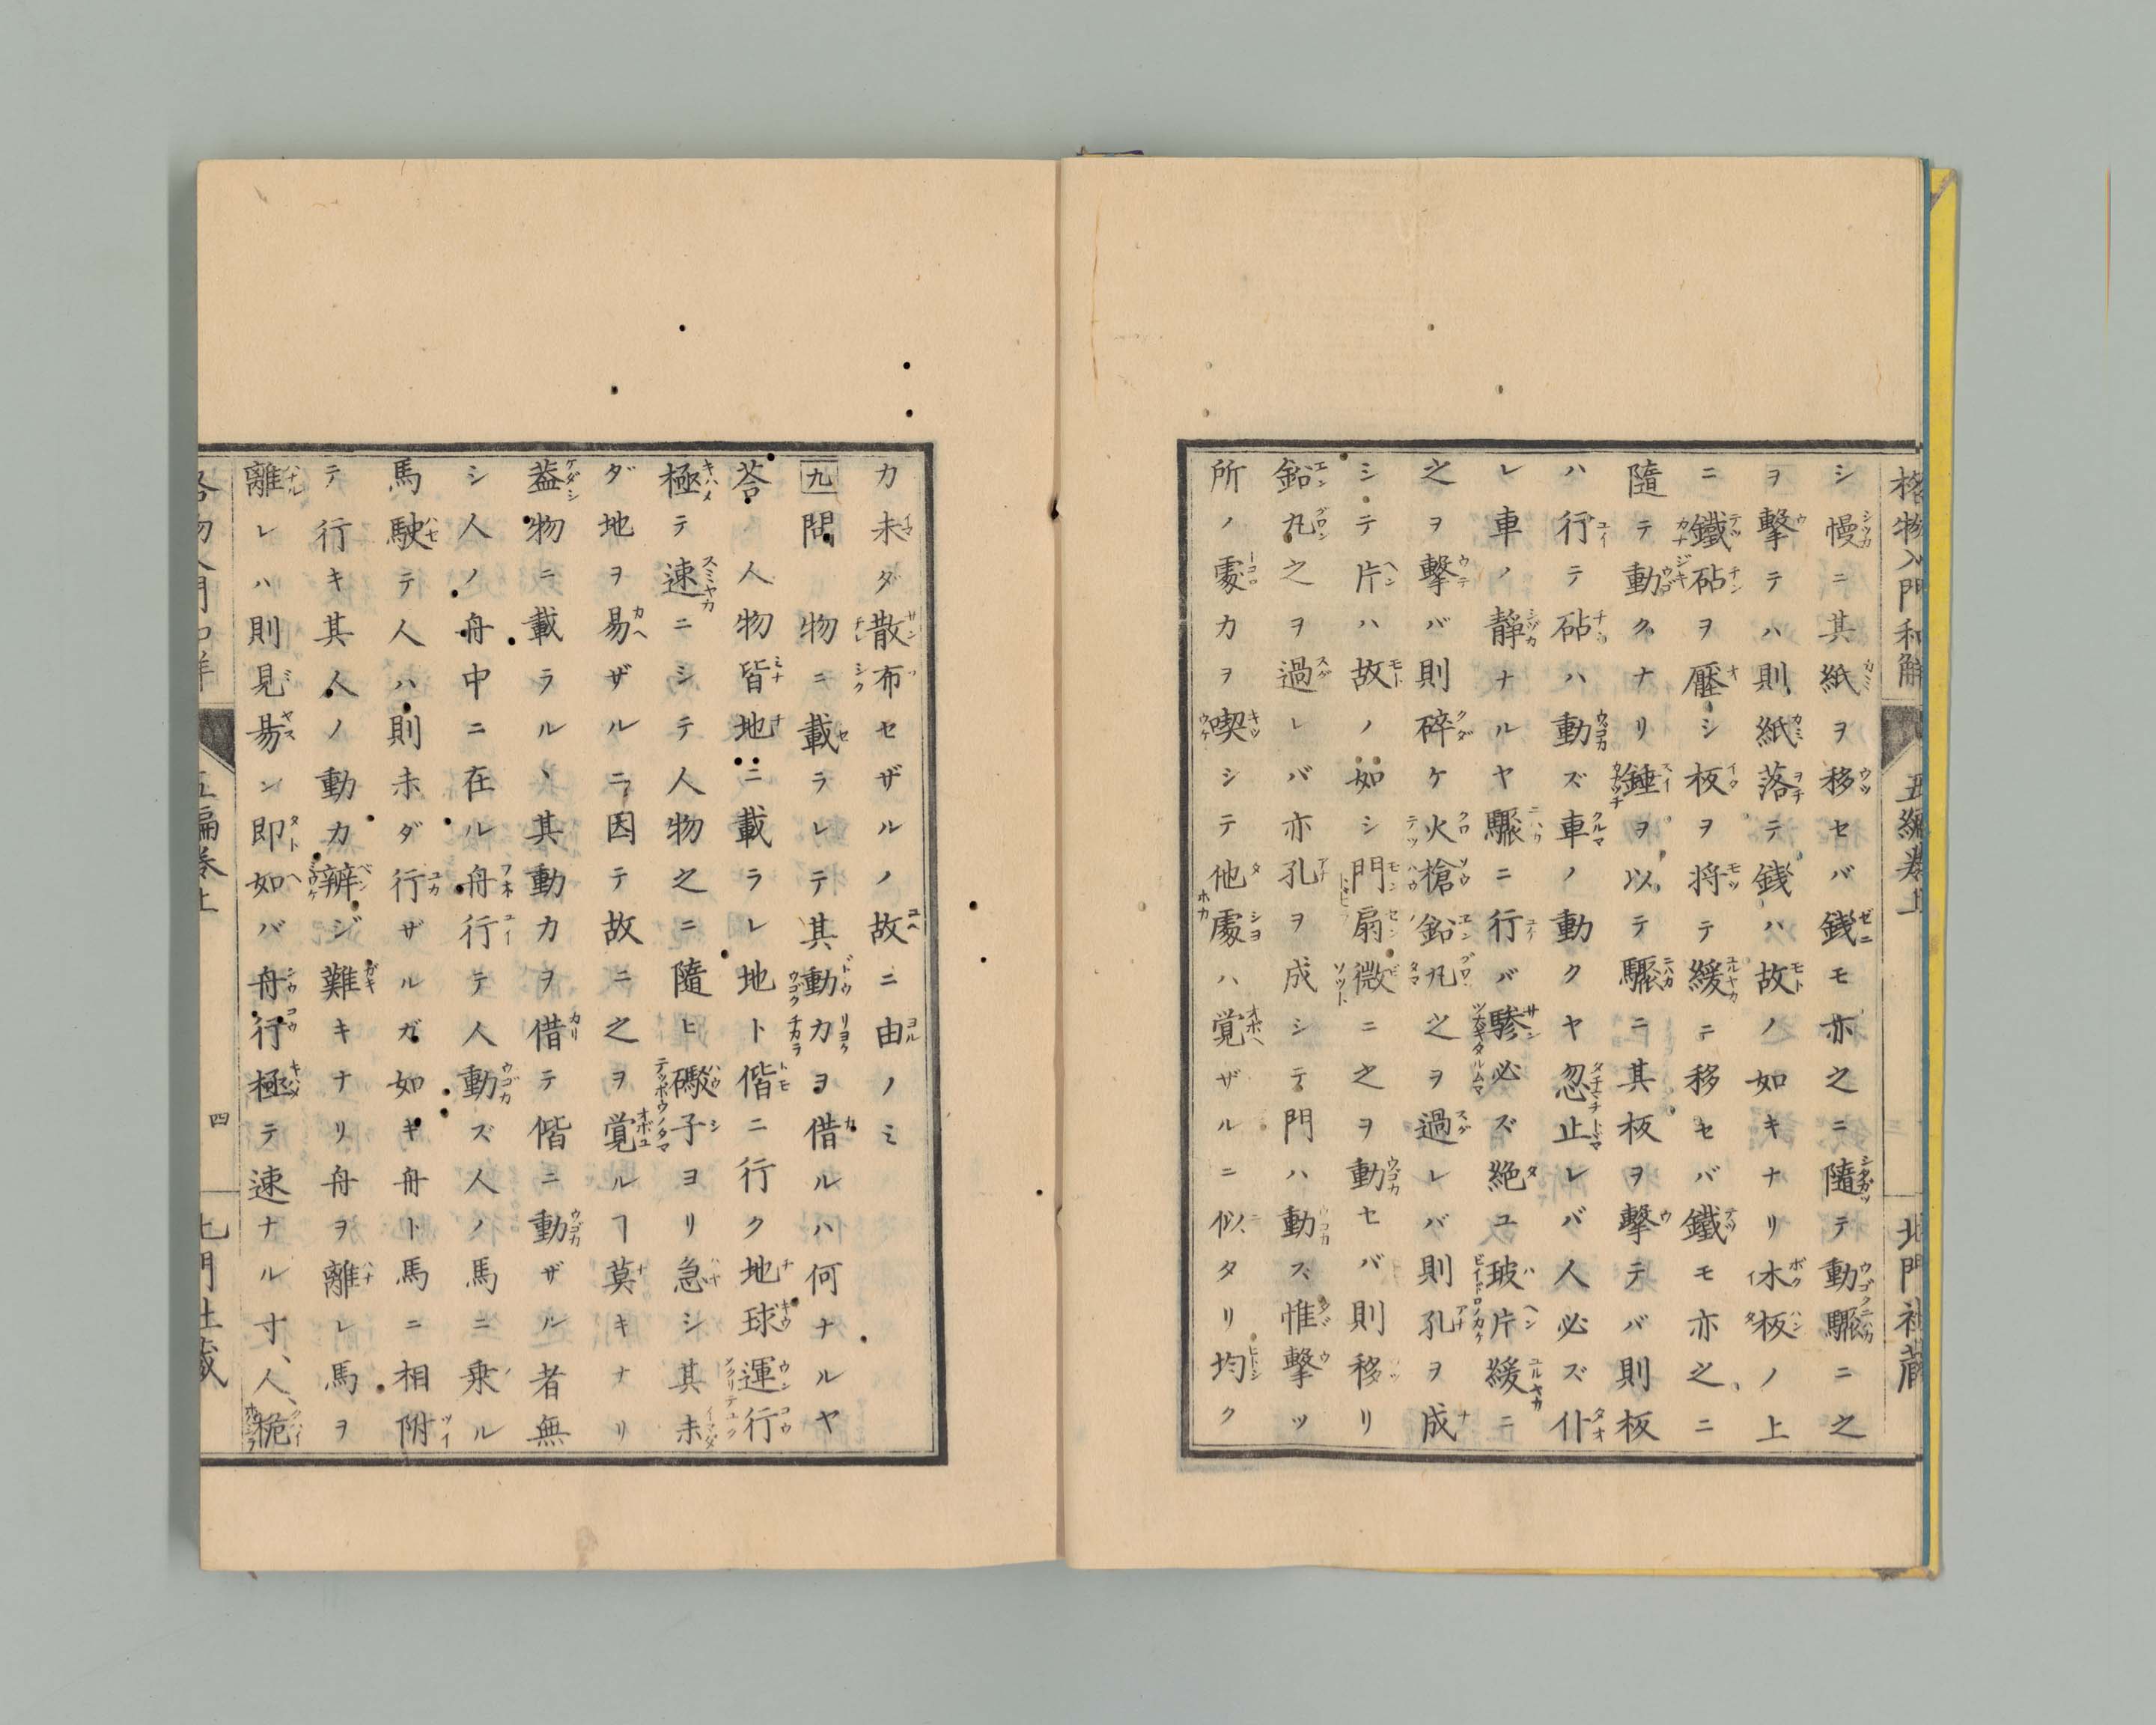 格物入門和解 五編巻上 北門社蔵
シ慢ニ其紙ヲ移セバ銭モ亦之ニ隨テ動驟ニ之
ヲ擊テハ則紙落テ銭ハ故ノ如キナリ木板ノ上
ニ鐵砧ヲ壓シ板ヲ将テ緩ニ移セバ鐵モ亦之ニ
隨テ動クナリ錘ヲ以テ驟ニ其板ヲ擊テバ則板
ハ行テ砧ハ動ズ車ノ動クヤ忽止レバ人必ズ仆
レ車ノ靜ナルヤ驟ニ行バ驂必ズ絶ユ玻片緩ニ
之ヲ擊バ則碎ケ火槍鉛丸之ヲ過レバ則孔ヲ成
シテ片ハ故ノ如シ門扇微ニ之ヲ動セバ則移リ
鉛丸之ヲ過レバ亦孔ヲ成シテ門ハ動ズ惟擊ツ
所ノ處力ヲ喫シテ他處ハ覚ヘザルニ似タリ均ク
力未ダ散布セザルノ故ニ由ノミ
九問 物ニ載ラレテ其動力ヲ借ルハ何ナルヤ
荅 人物皆地ニ載ラレ地ト偕ニ行ク地球運行
極テ速ニシテ人物之ニ隨ヒ礮子ヨリ急シ其未
ダ地ヲ易ザルニ因テ故ニ之ヲ覚ルヿ莫キナリ
葢物ニ載ラル、其動力ヲ借テ偕ニ動ザル者無
シ人ノ舟中ニ在ル舟行テ人動ズ人ノ馬ニ乗ル
馬駛テ人ハ則未ダ行ザルガ如キ舟ト馬ニ相附
テ行キ其人ノ動力辨ジ難キナリ舟ヲ離レ馬ヲ
離レハ則見易ン即如バ舟行極テ速ナル寸、人、桅
五編巻上 四 北門社蔵